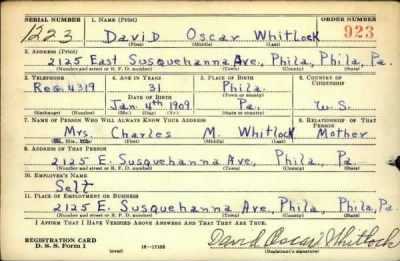 SERIAL NUMBER 1. NAME (Print) ORDER NUMBER
1223 David Oscar Whitlock 923
(First) (Middle) (Last)
2. ADDRESS (Print)
2125 East Susquehanna Ave, Phila, Phila, Pa.
(Number and street or R. F. D. number) (Town) (County) (State)
3. TELEPHONE 4. AGE IN YEARS 5. PLACE OF BIRTH 6. COUNTRY OF CITIZENSHIP
Reg. 4319 31 Phila.
DATE OF BIRTH (Town or county)
Jan. 4th 1909 Pa. U.S.
(Exchange) (Number) (Mo.) (Day) (Yr.) (State or country)
7. NAME OF PERSON WHO WILL ALWAYS KNOW YOUR ADDRESS 8. RELATIONSHIP OF THAT PERSON
Mrs. Charles M. Whitlock Mother
(First) (Middle) (Last)
9. ADDRESS OF THAT PERSON
2125 E. Susquehanna Ave, Phila, Phila Pa.
(Number and street or R. F. D. number) (Town) (County) (State)
10. EMPLOYER'S NAME
Self
11. PLACE OF EMPLOYMENT OR BUSINESS
2125 E. Susquehanna Ave, Phila, Phila, Pa.
(Number and street or R. F. D. number) (Town) (County) (State)
I AFFIRM THAT I HAVE VERIFIED ABOVE ANSWERS AND THAT THEY ARE TRUE.
REGISTRATION CARD
D. S. S. Form 1 (over) David Oscar Whitlock
(Registrant's signature)